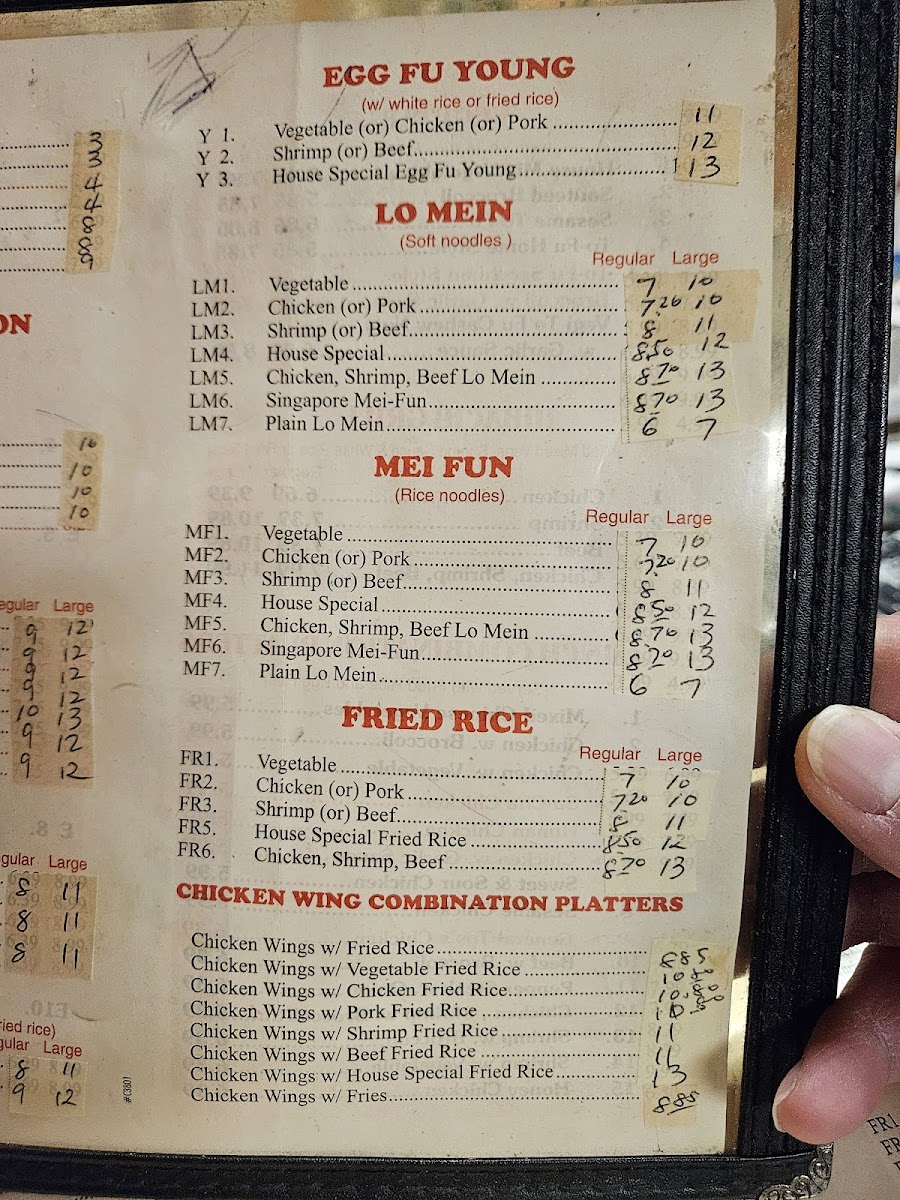 3
3
4
4
8
8
9
ON
10
10
10
10
egular Large
9 12
9 12
9 12
9 12
10 13
9 12
9 12
gular Large
8 11
8 11
8 11
ried rice)
gular Large
8 11
9 12
EGG FU YOUNG
(w/ white rice or fried rice)
Y 1. Vegetable (or) Chicken (or) Pork 11
Y 2. Shrimp (or) Beef 12
Y 3. House Special Egg Fu Young 13
LO MEIN
(Soft noodles )
Regular Large
LM1. Vegetable 7 10
LM2. Chicken (or) Pork 7.20 10
LM3. Shrimp (or) Beef 8 11
LM4. House Special 8.50 12
LM5. Chicken, Shrimp, Beef Lo Mein 8.70 13
LM6. Singapore Mei-Fun 8.70 13
LM7. Plain Lo Mein 6 7
MEI FUN
(Rice noodles)
Regular Large
MF1. Vegetable 7 10
MF2. Chicken (or) Pork 7.20 10
MF3. Shrimp (or) Beef 8 11
MF4. House Special 8.50 12
MF5. Chicken, Shrimp, Beef Lo Mein 8.70 13
MF6. Singapore Mei-Fun 8.20 13
MF7. Plain Lo Mein 6 7
FRIED RICE
Regular Large
FR1. Vegetable 7 10
FR2. Chicken (or) Pork 7.20 10
FR3. Shrimp (or) Beef 8 11
FR5. House Special Fried Rice 8.50 12
FR6. Chicken, Shrimp, Beef 8.70 13
CHICKEN WING COMBINATION PLATTERS
Chicken Wings w/ Fried Rice 8.85
Chicken Wings w/ Vegetable Fried Rice
Chicken Wings w/ Chicken Fried Rice
Chicken Wings w/ Pork Fried Rice
Chicken Wings w/ Shrimp Fried Rice 11
Chicken Wings w/ Beef Fried Rice 11
Chicken Wings w/ House Special Fried Rice 13
Chicken Wings w/ Fries 8.85
FR1